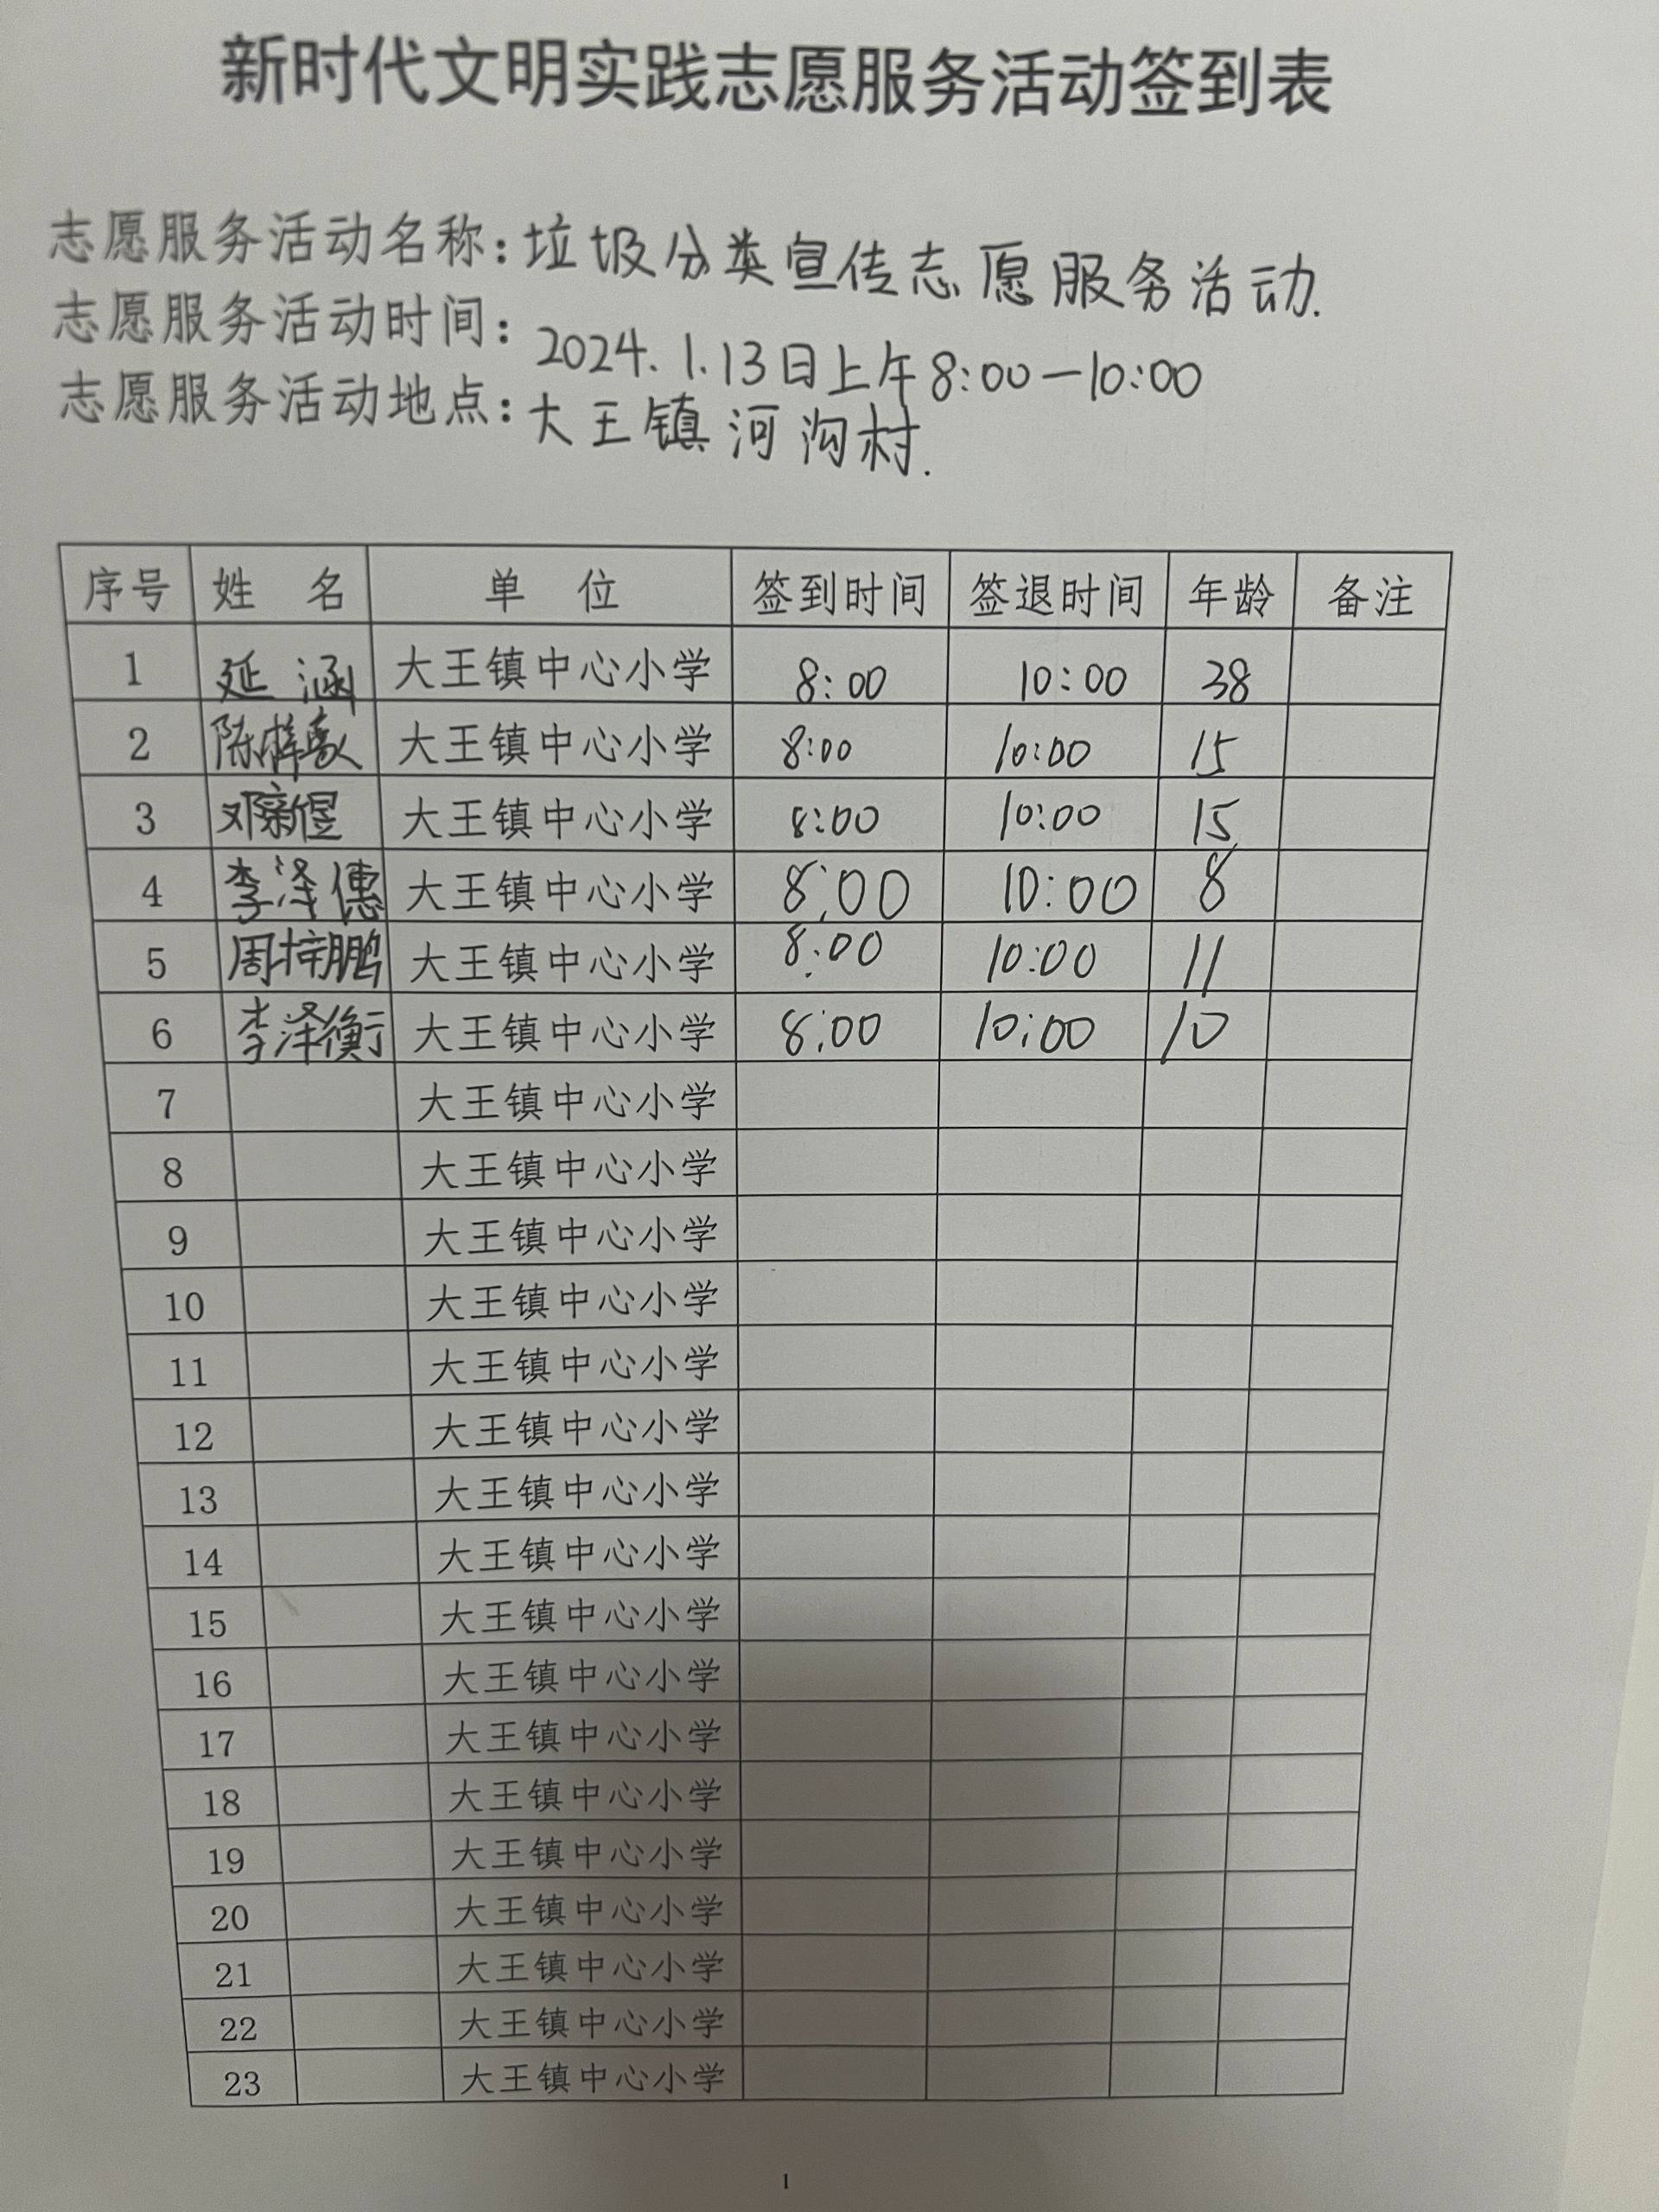 新时代文明实践志愿服务活动签到表
志愿服务活动名称：垃圾分类宣传志愿服务活动.
志愿服务活动时间：2024.1.13日上午8:00—10:00
志愿服务活动地点：大王镇河沟村.
序号 姓 名 单 位 签到时间 签退时间 年龄 备注
1 延涵 大王镇中心小学 8:00 10:00 38
2 陈梓 大王镇中心小学 8:00 10:00 15
3 邓新偃 大王镇中心小学 8:00 10:00 15
4 李泽 大王镇中心小学 8:00 10:00 8
5 周梓鹏 大王镇中心小学 8:00 10:00 11
6 李泽衡 大王镇中心小学 8:00 10:00 10
7 大王镇中心小学
8 大王镇中心小学
9 大王镇中心小学
10 大王镇中心小学
11 大王镇中心小学
12 大王镇中心小学
13 大王镇中心小学
14 大王镇中心小学
15 大王镇中心小学
16 大王镇中心小学
17 大王镇中心小学
18 大王镇中心小学
19 大王镇中心小学
20 大王镇中心小学
21 大王镇中心小学
22 大王镇中心小学
23 大王镇中心小学
1